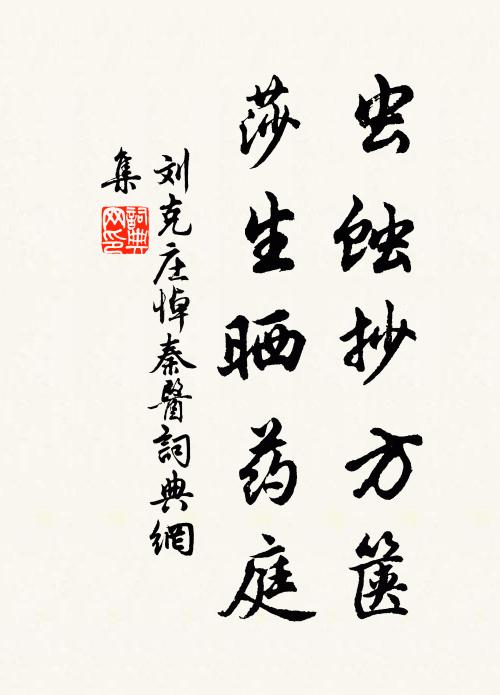 虫蚀抄方箧
莎生晒药庭
刘克庄悼秦醫詞典網
集
詞典
网印